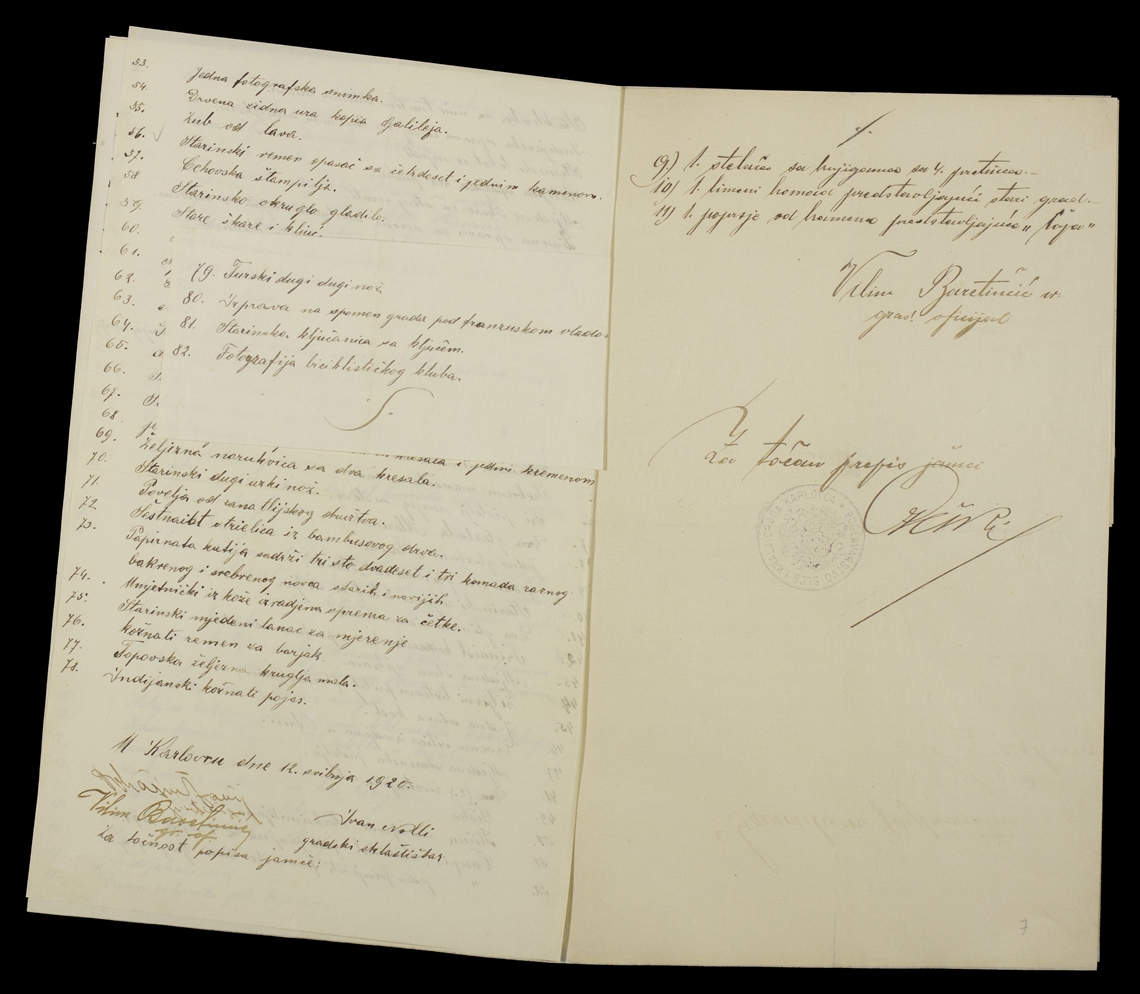 53. Jedna fotografska snimka.
54. Drvena zidna ura kopia Galileja.
55. Zub od lava.
56. Starinski remen opasač sa četrdeset i jednim kamenom.
57. Cehovska štampilja.
58. Starinsko okruglo gladilo.
59. Stare škare i ključ.
60.
61.
62.
63.
64.
65.
66.
67.
68.
79. Turski dugi dugi nož.
80. Isprava na spomen grada pod francuskom vlado
81. Starinska ključanica sa ključem.
82. Fotografija biciklističkog kluba.
kresala i jedni kremenom
69. Željezna narukvica sa dva kresala.
70. Starinski dugi urki nož.
71. Povelja od
72. Šestnaist strielica iz bambusovog drva.
73. Papirnata kutija sadrži tri sto dvadeset i tri komada raznog
bakrenog i srebrenog novca starih i novijih
74. Umjetnički iz kože izradjena sprema za četke.
75. Starinski mjedeni lanac za mjerenje
76. Kožnati remen za barjak.
77. Topovska željezna kruglja mala.
78. Indijanski kožnati pojas.
U Karlovcu dne 12. svibnja 1920.
Vilim Baretinčić
gr. of.
Ivan Nolli
gradski skladištar
Za točnost popisa jamče:
9) 1. stelaža sa knjigama sa 4. pretinca.-
10) 1. limeni komad predstavljajući stari grad.-
11) 1. poprsje od kamena predstavljajuća "
Vilim Baretinčić v.r.
grad. oficijal
Za točan prepis jamči
7